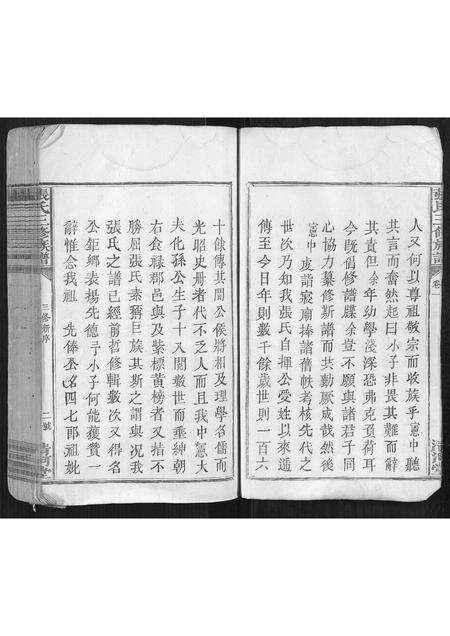 張氏三修族譜
人又何以尊祖敬宗而收族乎憲中聽
其言而奮然起曰小子非畏其難而辭
其責但余年幼學淺深恐弗克負荷耳
今既倡修譜牒余豈不願與諸君子同
心協力纂修斯譜而共勷厥成哉然後
憲中虔詣寢廟捧諸舊帙考核先代之
世次乃知我張氏自揮公受姓以來遞
傳至今日年則數千餘歲世則一百六
十餘傳其間公侯將相及理學名儒而
光昭史册者代不乏人而且我中憲大
夫化孫公生子十又閱數世而垂紳朝
右食祿郡邑與及紫標黃榜者又指不
勝屈張氏素稱巨族其斯之謂與況我
張氏之譜已經前哲修輯數次又得名
公鉅鄉表揚先德予小子何能獲贊一
辭惟念我祖 先俸公名四七郎祖妣
張氏三修族譜
三修新序
二號
清河堂